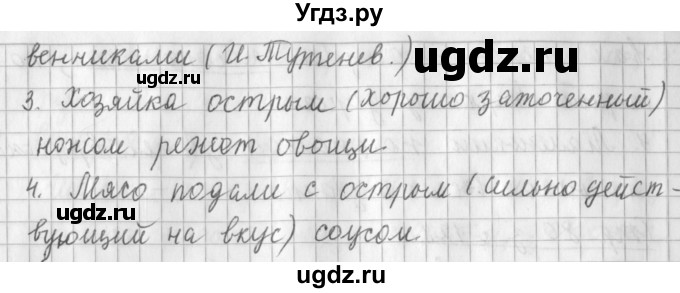 Угдз.ру
венниками (И. Тургенев.)
gdz.ru
ugdz.ru
3. Хозяйка острым (хорошо заточенный)
ножом режет овощи
4. Мясо подали с острым (сильно дейст-
ugdz.ru
вующий на вкус) соусом.
ugdz.ru
ugdz.ru